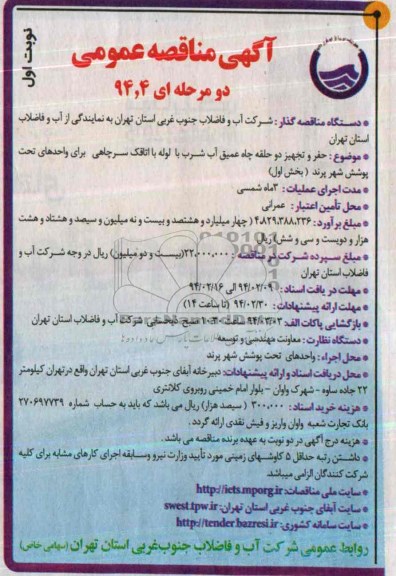 نوبت اول
آگهی مناقصه عمومی
دو مرحله ای ۹۴,۴
* دستگاه مناقصه گذار: شرکت آب و فاضلاب جنوب غربی استان تهران به نمایندگی از آب و فاضلاب
استان تهران
* موضوع: حفر و تجهیز دو حلقه چاه عمیق آب شرب با لوله با اتاقک سرچاهی برای واحدهای تحت
پوشش شهر پرند (بخش اول)
* مدت اجرای عملیات: ۳ماه شمسی
* محل تأمین اعتبار: عمرانی
* مبلغ برآورد: ۴,۸۲۹,۳۸۸,۲۳۶ (چهار میلیارد و هشتصد و بیست و نه میلیون و سیصد و هشتاد و هشت
هزار و دویست و سی و شش) ریال
* مبلغ سپرده شرکت در مناقصه: ۲۲,۰۰۰,۰۰۰(بیست و دو میلیون) ریال در وجه شرکت آب و
فاضلاب استان تهران
* مهلت دریافت اسناد: ۹۴/۰۲/۰۹ الی ۹۴/۰۲/۱۶
* مهلت ارائه پیشنهادات: ۹۴/۰۲/۳۰ (تا ساعت ۱۴)
* بازگشایی پاکات الف: ۹۴/۰۳/۰۳ ساعت صبح شرکت آب و فاضلاب استان تهران
* دستگاه نظارت: معاونت مهندسی و توسعه
* محل اجراء: واحدهای تحت پوشش شهر پرند
* محل دریافت اسناد و ارائه پیشنهادات: دبیرخانه آبفای جنوب غربی استان تهران واقع درتهران کیلومتر
۲۲ جاده ساوه - شهرک واوان - بلوار امام خمینی روبروی کلانتری
* هزینه خرید اسناد: ۳۰۰,۰۰۰ (سیصد هزار) ریال می باشد که باید به حساب شماره ۲۷۰۶۹۷۷۳۹
بانک تجارت شعبه واوان واریز و فیش نقدی ارائه گردد.
* هزینه درج آگهی در دو نوبت به عهده برنده مناقصه می باشد.
* داشتن رتبه حداقل ۵ کاوشهای زمینی مورد تأیید وزارت نیرو وسابقه اجرای کارهای مشابه برای کلیه
شرکت کنندگان الزامی میباشد.
* سایت ملی مناقصات: http://iets.mporg.ir
* سایت آبفای جنوب غربی استان تهران: swest.tpw.ir
* سایت سامانه کشوری: http://tender.bazresi.ir
روابط عمومی شرکت آب و فاضلاب جنوب غربی استان تهران (سهامی خاص)